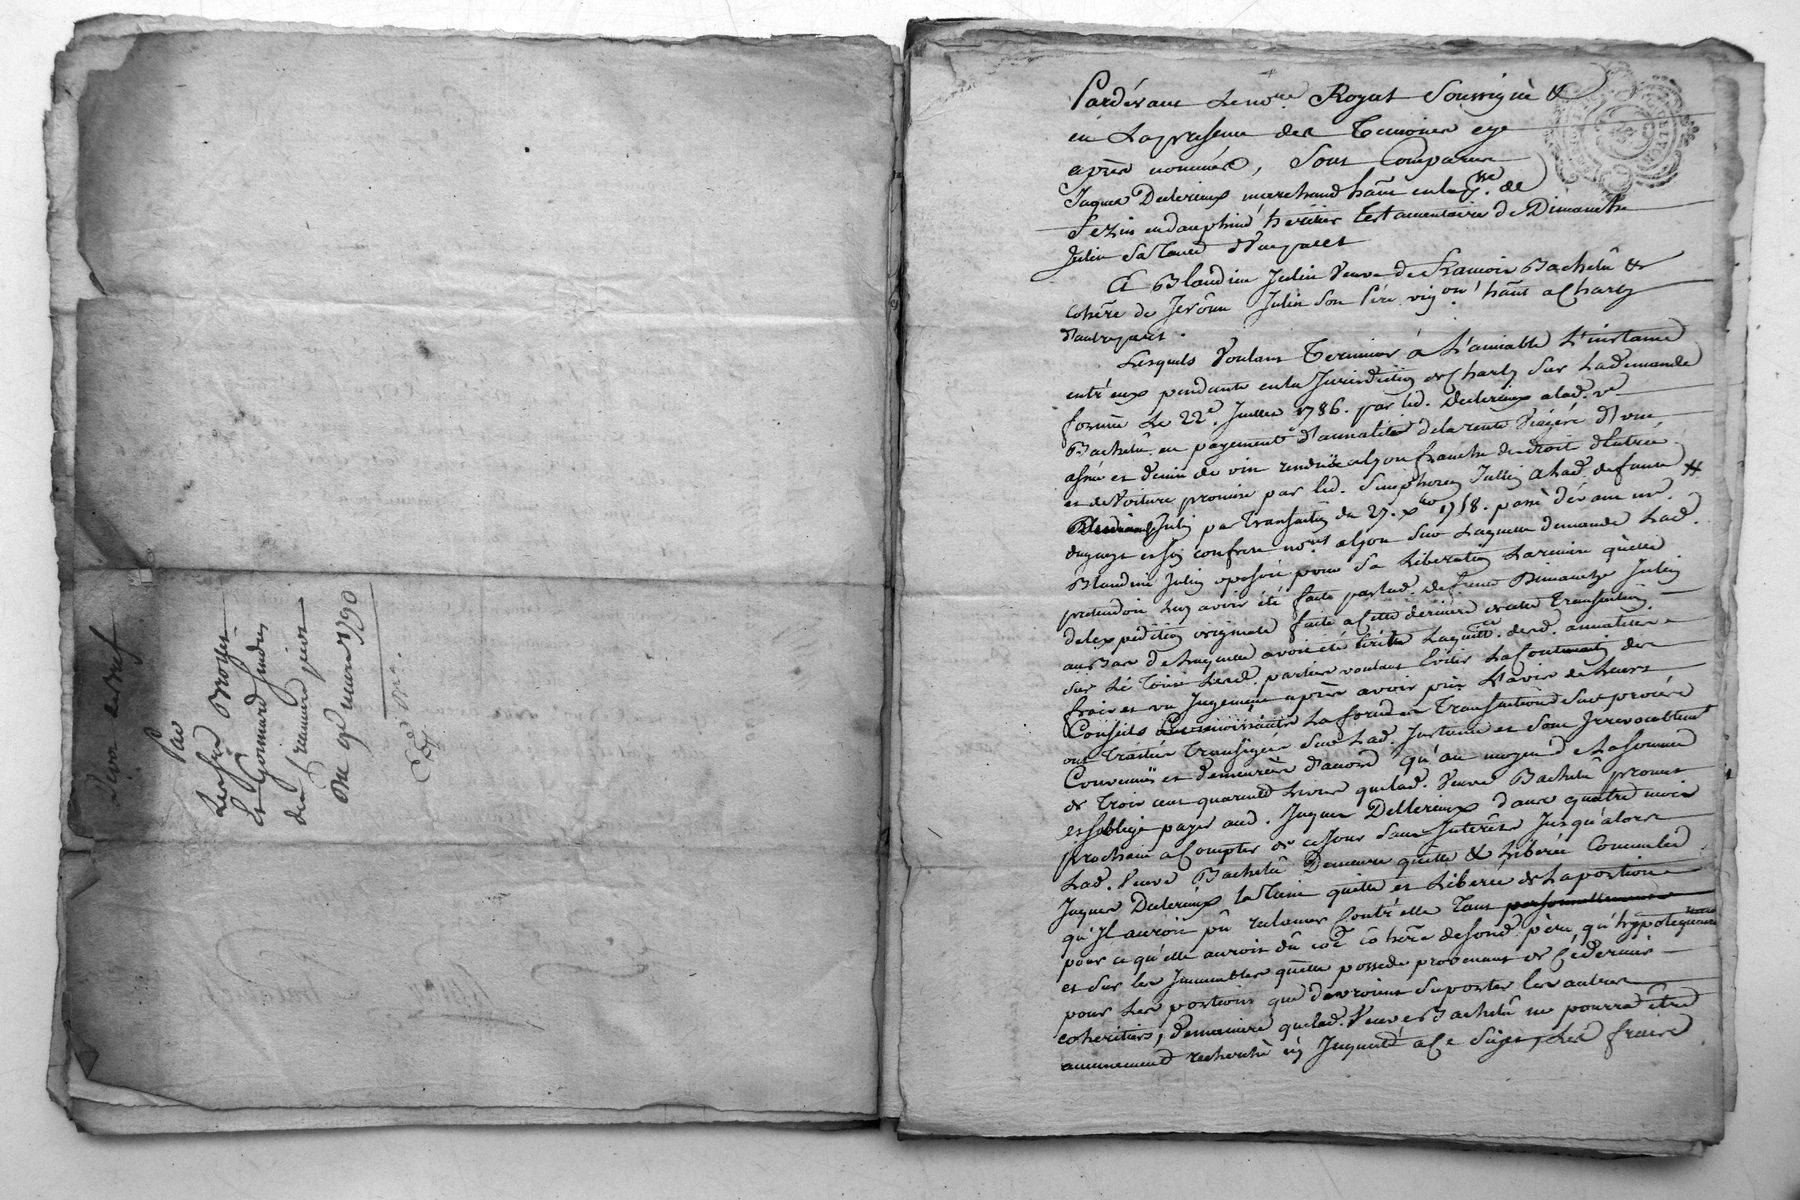 Par
Les freres Broyer
et Gonnard gendre
des premiers jours
Du 9e mars 1790
Expé
Pardevant Le nore. Royal Soussigné &
en La presence des Temoins cy
après nommés, Sont Comparus
Jaques Declerieux marchand hant. en la psse. de
en dauphiné, heritier testamentaire de Dimanche
Julin Sa d'une part
Et Blandine Julin Veuve de francois Bachelû &
cohére de Jerôme Julin Son Pére vigon. hant a Charly
d'autre part.
Lesquels Voulant Terminer à L'amiable L'instance
entr'eux pendante en la Jurisdiction de Charly Sur La demande
formée Le 22e. Juillet 1786. par led. Declerieux a lad. ve.
Bachelû en payement d'annalités de la rente Viagére d'une
asnée et demie de vin rendüe a Lyon franche de droit d'Entrée
et de Voiture promise par led. Simphorien Jullin a lad. defunte #
Julin par Transaction du 27. xbre 1758. passé dévant me.
et son confrere nores a Lyon Sur Laquelle demande Lad.
Blandine Julin oposoit pour Sa Liberation La remise qu'elle
pretendoit Luy avoir été faite par lad. defunte Dimanche Julin
de lexpedition originale faite a Cette derniere de cette Transaction
au Bas De Laquelle avoit été Ecrite La quittce. desd. annalités
Sur Le Tout Lesd. parties voulant Eviter La Continuation des
frais et un Jugement après avoir pris L'avis de Leurs
Conseils La forme de Transaction Sur procés
ont Traité Transigé Sur Lad. Instance et Sont Irrevocablement
Convenües et demeurées d'accord qu'au moyen de La Somme
de Trois cent quarante Livres que lad. Veuve Bachelû promet
et soblige payer aud. Jaques Declerieux dans quatre mois
prochain a Compter de ce Jour Sans Intérêts Jusqu'alors
Lad. Veuve Bachelû Demeure quitte & Libérée Comme led
Jaques Decleriéux la Tient quitte et Liberée de La portion
qu'Il auroit pû reclamer Contr'elle Tant personnellement
pour ce qu'elle auroit dû coe. cohére de Sond. père, qu'hypotequairemt
et Sur les Immeubles qu'elle possede provenant de Ce dernier
pour Les portions que devroient Suporter les autres
coheritiers, de maniere que lad. Veuve Bachelû ne pourra être
aucunement recherché ny Inquieté a Ce Sujet, Les fraix